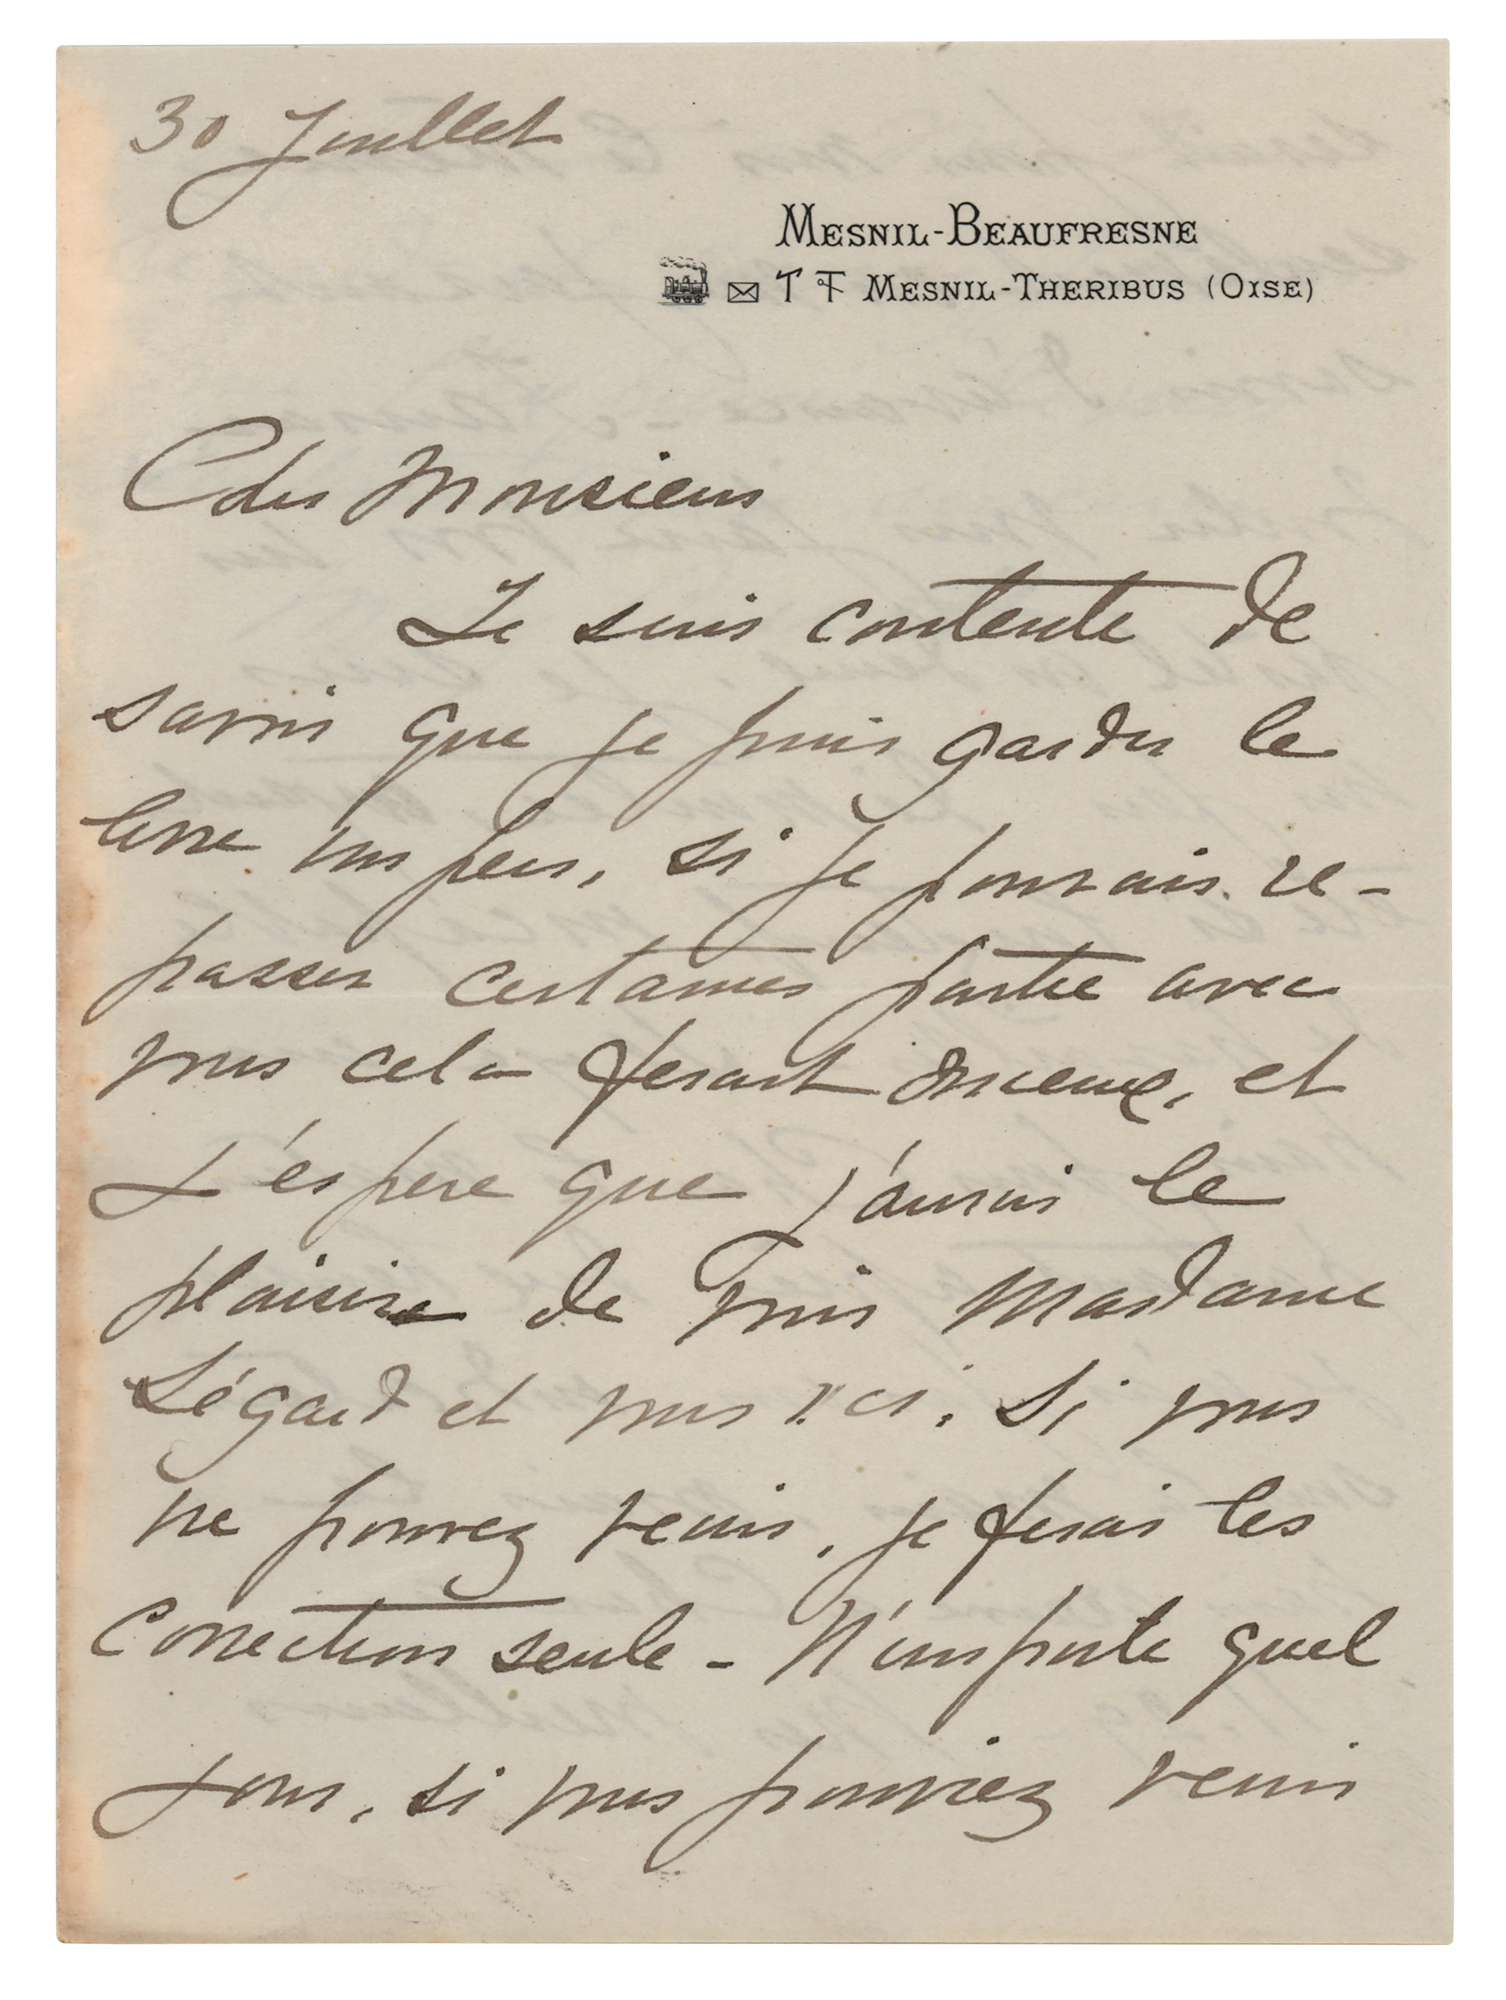 30 Juillet
MESNIL-BEAUFRESNE
T F MESNIL-THERIBUS (OISE)
Cher Monsieur
Je suis contente de
savoir que je puis garder le
livre un peu, si je pouvais re-
passer certaines partie avec
vous cela serait mieux, et
j'espere que j'aurai le
plaisir de voir Madame
Ségard et vous ici. Si vous
ne pouvez venir, je ferai les
correction seule - N'importe quel
jour, si vous pouviez venir